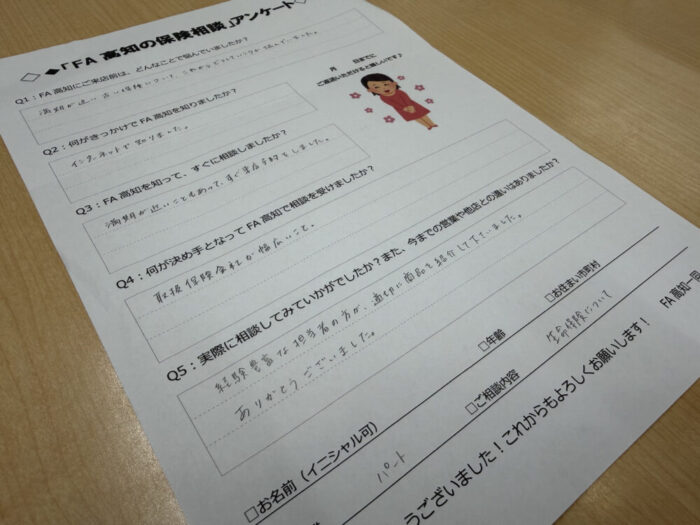 ◇◆「FA 高知の保険相談」アンケート◇
Q1：FA 高知にご来店前は、どんなことで悩んでいましたか？
満期が近い古い保険について、これからどうしていくか悩んでいました。
月 日までに
ご返送いただけると嬉しいです♪
Q2：何がきっかけで FA 高知を知りましたか？
インターネットで知りました。
Q3：FA 高知を知って、すぐに相談しましたか？
満期が近いこともあって、すぐ来店予約をしました。
Q4：何が決め手となって FA 高知で相談を受けましたか？
取扱保険会社が幅広いこと。
Q5：実際に相談してみていかがでしたか？また、今までの営業や他店との違いはありましたか？
経験豊富な担当者の方が、適切に商品を紹介して下さいました。
ありがとうございました。
□お名前（イニシャル可）
□年齢
□お住まい市町村
パート
□ご相談内容
生命保険について
うございました！これからもよろしくお願いします！
FA 高知一同